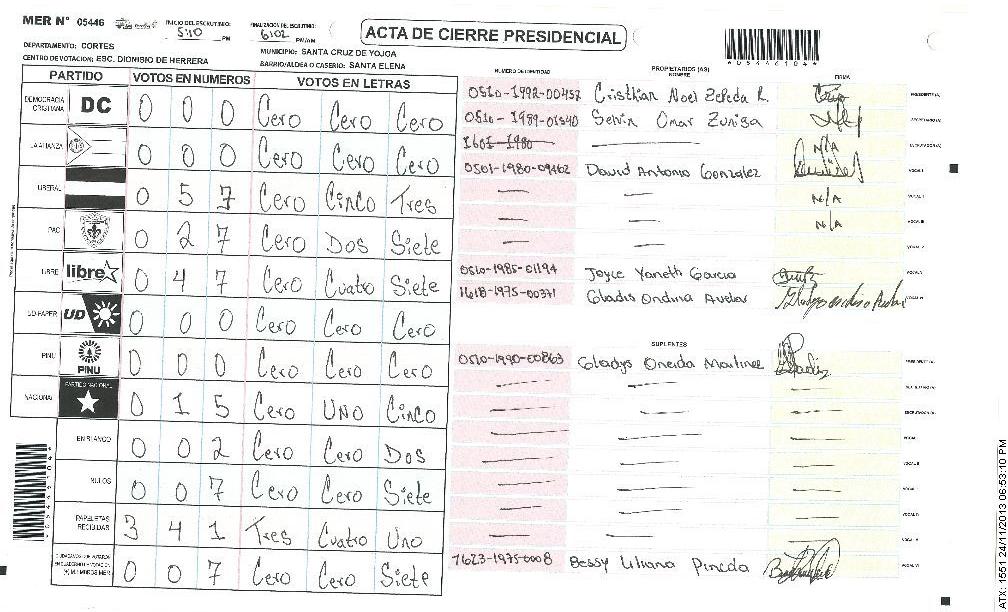 MER N° 05446
INICIO DEL ESCRUTINIO: 5:10 PM
FINALIZACION DEL ESCRUTINIO: 6:02 PM/AM
ACTA DE CIERRE PRESIDENCIAL
DEPARTAMENTO: CORTES
MUNICIPIO: SANTA CRUZ DE YOJOA
CENTRO DE VOTACION: ESC. DIONISIO DE HERRERA
BARRIO/ALDEA O CASERIO: SANTA ELENA
PARTIDO VOTOS EN NUMEROS VOTOS EN LETRAS
DEMOCRACIA CRISTIANA DC 0 0 0 Cero Cero Cero
LA ALIANZA 0 0 0 Cero Cero Cero
LIBERAL 0 5 7 Cero Cinco Tres
PAC 0 2 7 Cero Dos Siete
LIBRE libre 0 4 7 Cero Cuatro Siete
UD FAPER UD 0 0 0 Cero Cero Cero
PINU PINU 0 0 0 Cero Cero Cero
NACIONAL PARTIDO NACIONAL 0 1 5 Cero Uno Cinco
EN BLANCO 0 0 2 Cero Cero Dos
NULOS 0 0 7 Cero Cero Siete
PAPELETAS RECIBIDAS 3 4 1 Tres Cuatro Uno
0 0 7 Cero Cero Siete
*05446104*
NUMERO DE IDENTIDAD PROPIETARIOS (AS) NOMBRE FIRMA
0510-1992-00457 Cristhian Noel Zepeda R. PRESIDENTE(A)
0510-1989-01540 Selvin Omar Zuniga SECRETARIO(A)
1601-1980 N/A ESCRUTADOR(A)
0501-1980-09462 David Antonio Gonzalez VOCAL I
N/A
N/A
0510-1985-01194 Joyce Yaneth Garcia
1618-1975-00371 Gladis Ondina Avelar
SUPLENTES
0510-1990-00863 Gladys Oneida Martinez PRESIDENTE(A)
SECRETARIO(A)
ESCRUTADOR(A)
VOCAL
1623-1975-0008 Bessy Liliana Pineda
ATX: 1551 24/11/2013 06:53:10 PM